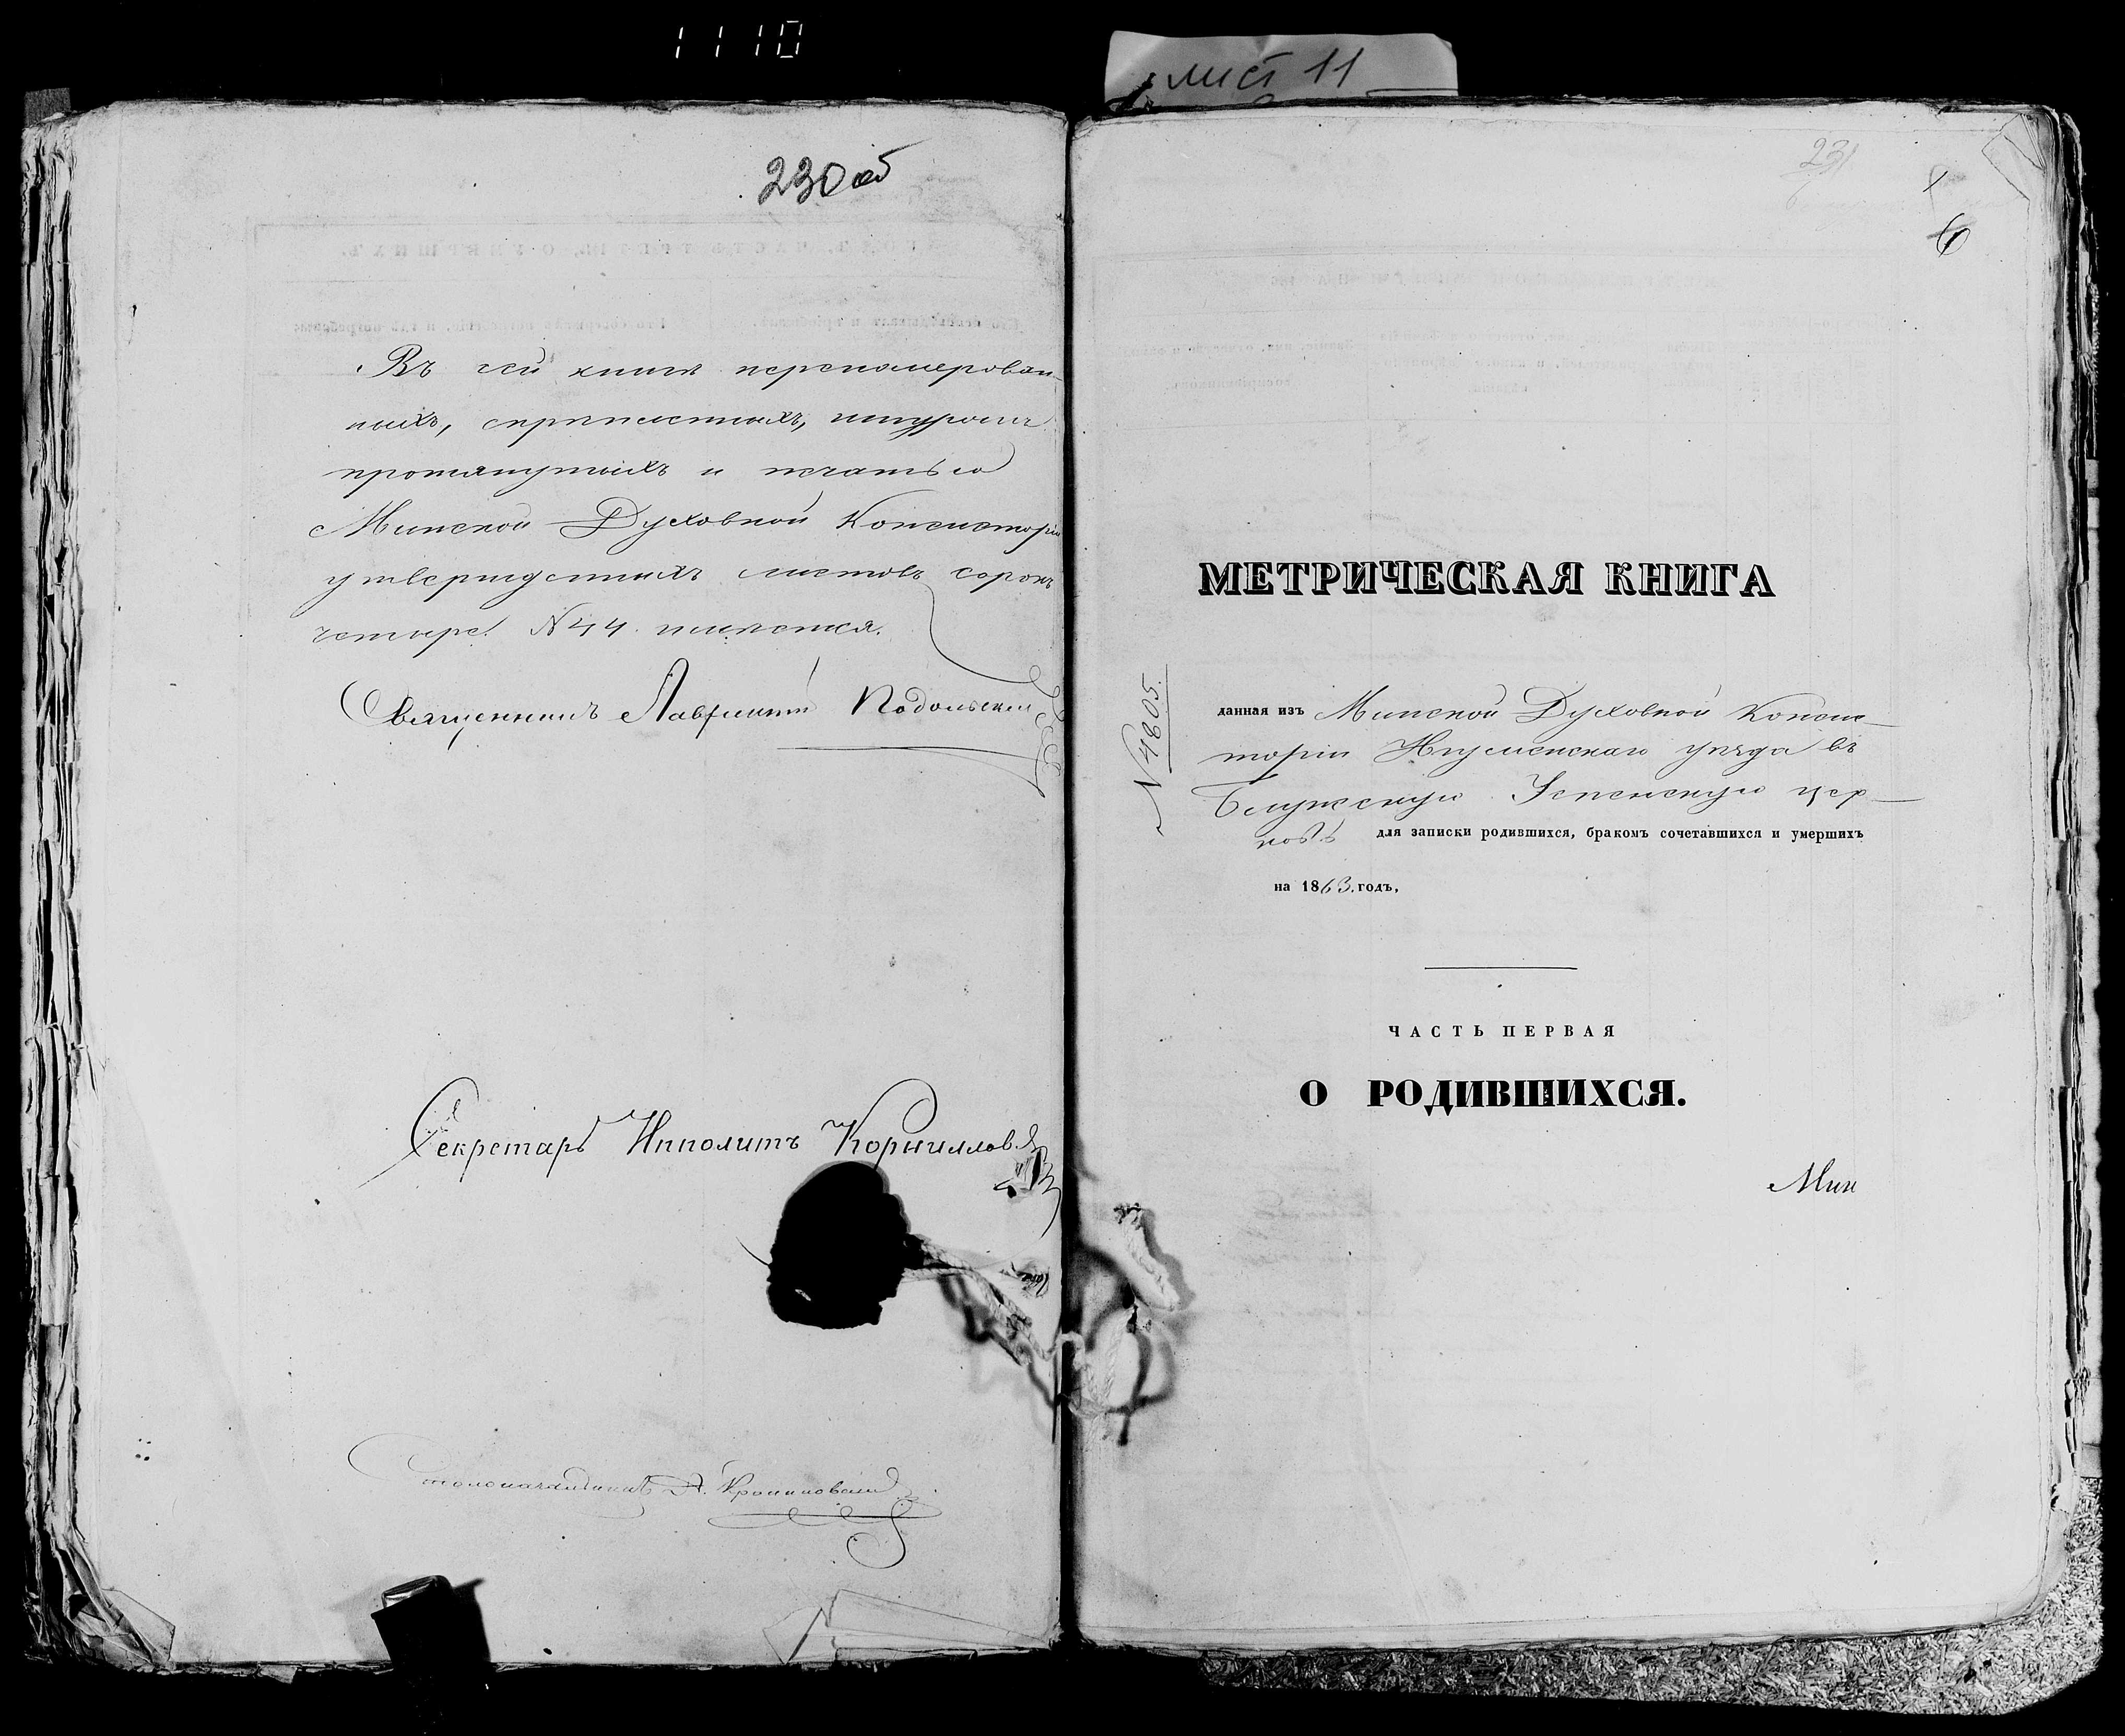 1110
лист 11
230 об
Въ сей книгѣ перенумерован-
ныхъ, скрѣпленныхъ, шнуромъ
протянутыхъ и печатью
Минской Духовной Консисторіи
утвержденныхъ листовъ сорокъ
четыре. N 44. имѣется.
Священникъ Лаврентій Подольскій
Секретарь Ипполитъ Корнилов
Столоначальникъ
231
6
МЕТРИЧЕСКАЯ КНИГА
N 4805.
данная изъ Минской Духовной Консис-
торіи Игуменскаго уѣзда въ
Блужскую Успенскую цер-
ковь для записки родившихся, бракомъ сочетавшихся и умершихъ
на 1863. годъ,
ЧАСТЬ ПЕРВАЯ
О РОДИВШИХСЯ.
Мин